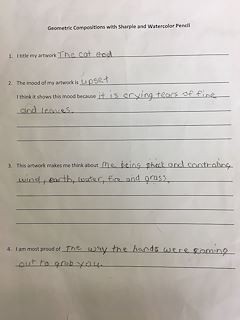 Geometric Compositions with Sharpie and Watercolor Pencil
1. I title my artwork The cat God
2. The mood of my artwork is upset
I think it shows this mood because it is crying tears of fire
and leaves.
3. This artwork makes me think about me being and controling
wind, earth, water, fire and grass.
4. I am most proud of The way the hands were coming
out to grab you.